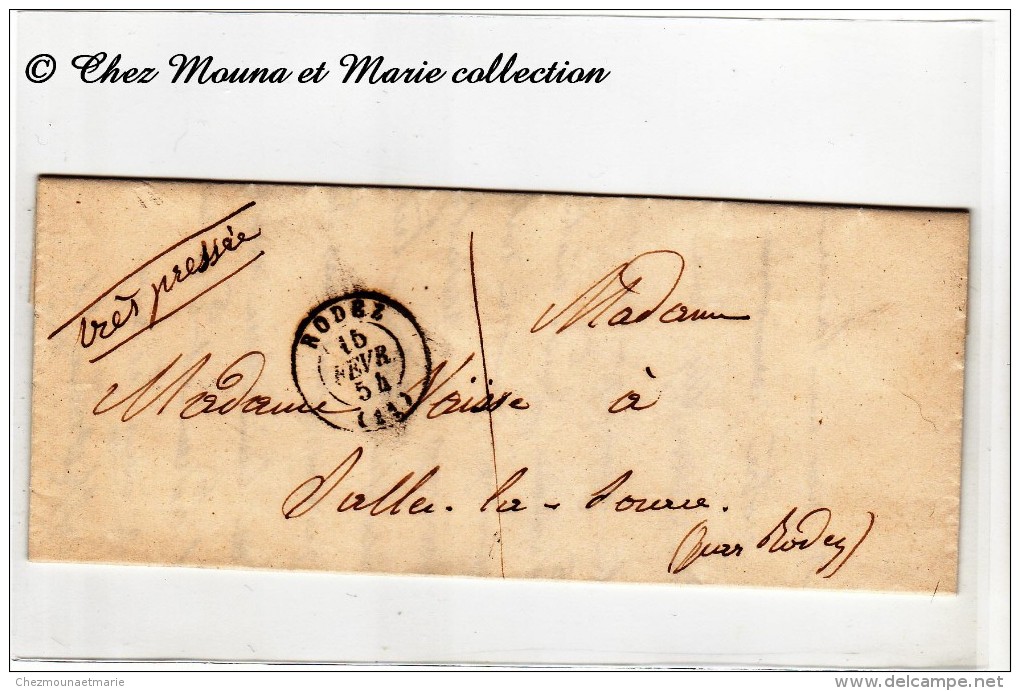 © Chez Mouna et Marie collection
très pressée
RODEZ
15
FEVR.
54
(11)
Madame
Madame Vaisse à
Salles-la-Source.
(par Rodez)
Chezmounaetmarie
delcampe.net